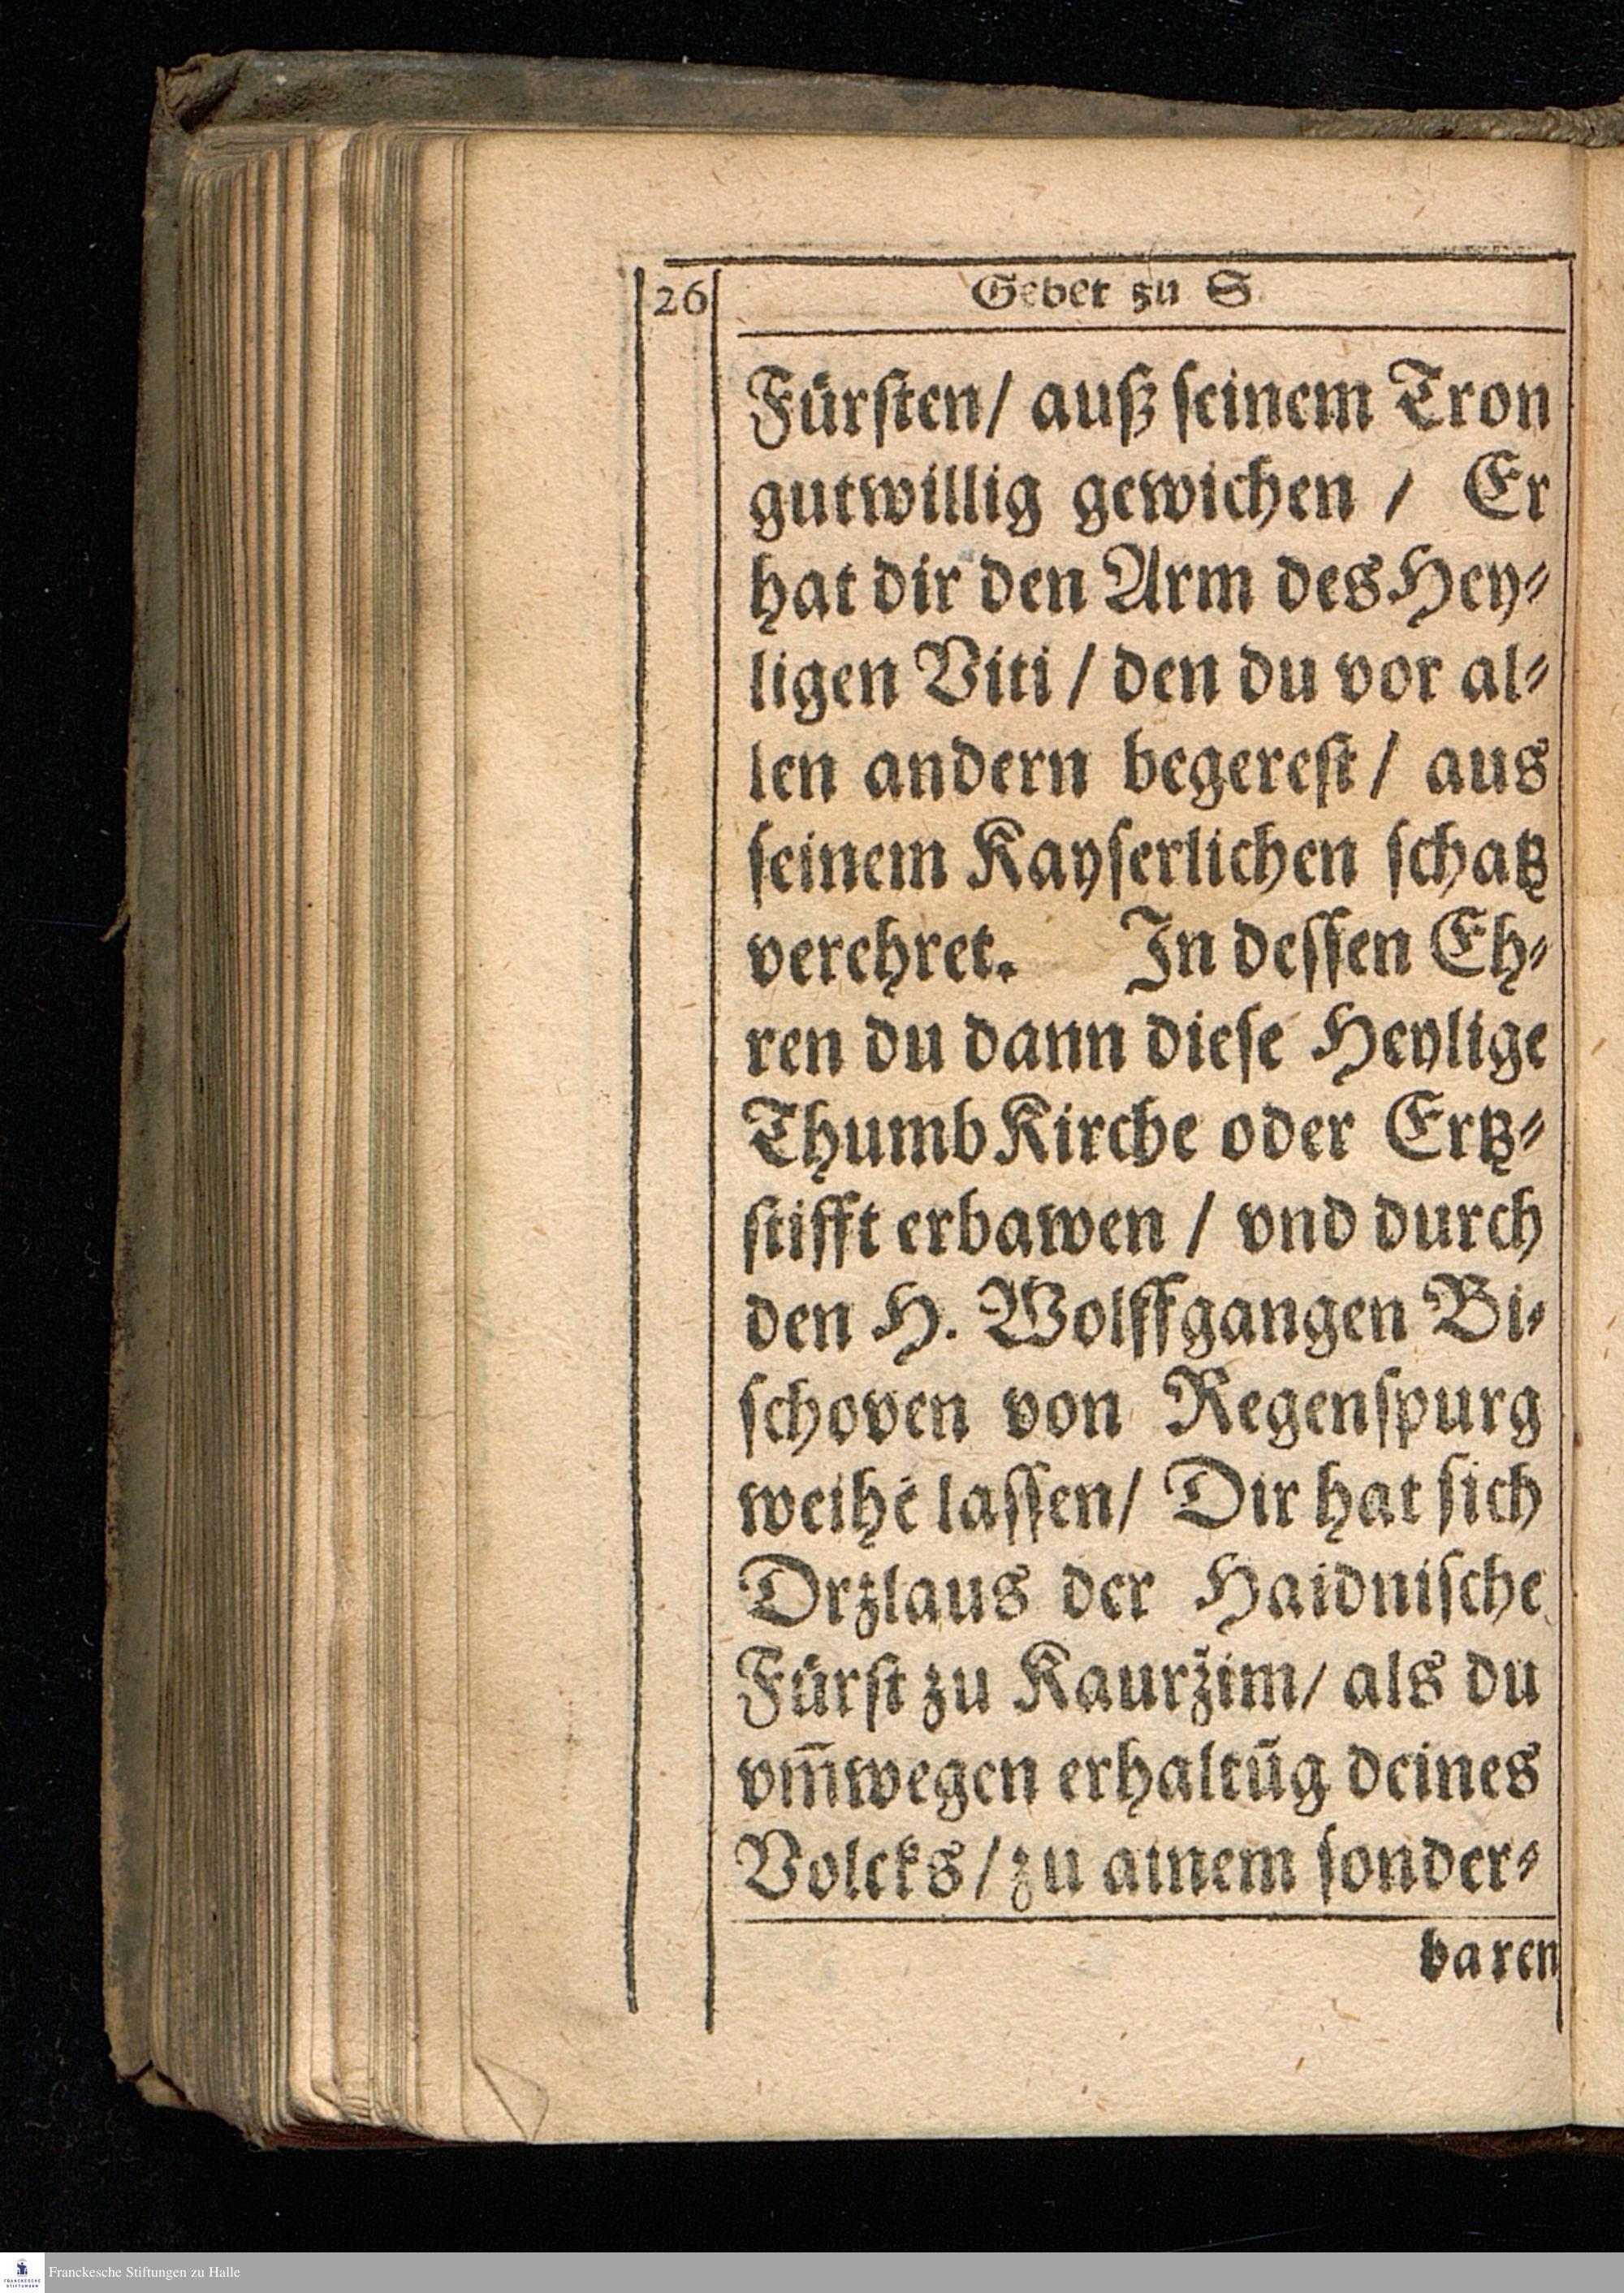 26
Gebet zu S
Fürſten/ auß ſeinem Tron
gutwillig gewichen / Er
hat dir den Arm des Hey⸗
ligen Viti / den du vor al⸗
len andern begereſt / aus
ſeinem Kayſerlichen ſchatz
verehret. In deſſen Eh⸗
ren du dann dieſe Heylige
Thumb Kirche oder Ertz⸗
ſtifft erbawen / vnd durch
den H. Wolffgangen Bi⸗
ſchoven von Regenſpurg
weihē laſſen/ Dir hat ſich
Orzlaus der Haidniſche
Fürſt zu Kauržim/ als du
vm̄wegen erhaltūg deines
Volcks / zu ainem ſonder⸗
baren
Franckesche Stiftungen zu Halle
FRANCKESCHE
STIFTUNGEN